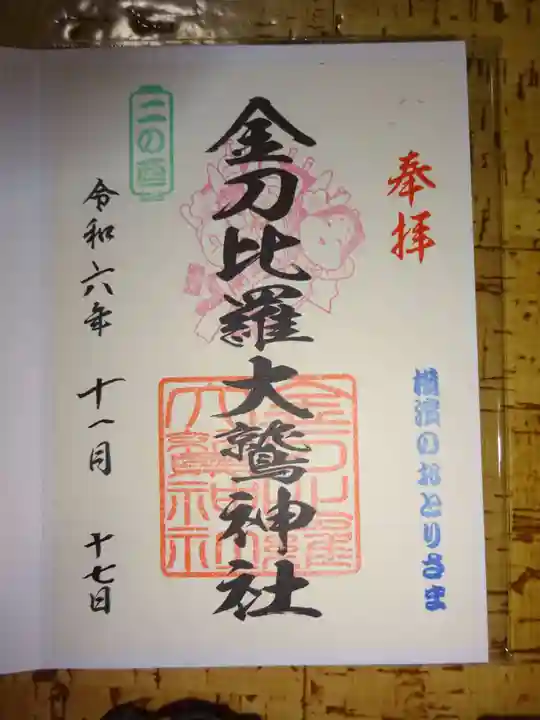 奉拝
横濱のおとりさま
金刀比羅大鷲神社
金刀比羅
大鷲神社
二の酉
令和六年 十一月 十七日